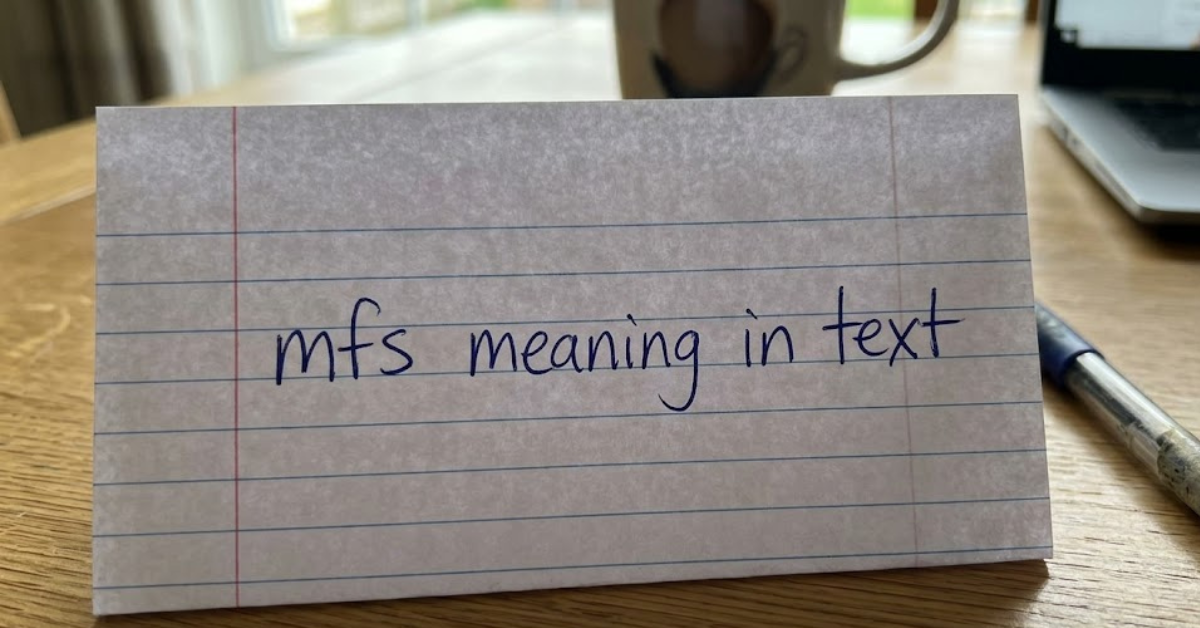 mfs meaning in text